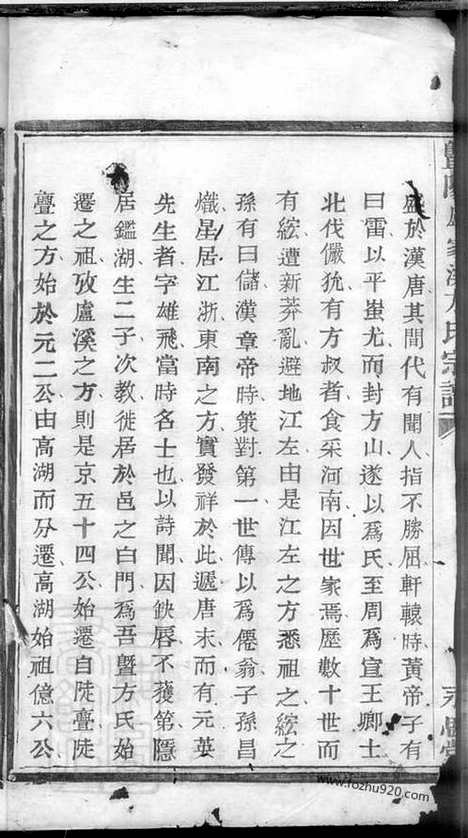 暨陽盧家溪方氏宗譜
盛於漢唐其間代有聞人指不勝屈軒轅時黃帝子有
曰雷以平蚩尤而封方山遂以爲氏至周爲宣王卿士
北伐儼狁有方叔者食采河南因世家焉歷數十世而
有紘遭新莽亂避地江左由是江左之方悉祖之紘之
孫有曰儲漢章帝時策對第一世傳以爲僊翁子孫昌
熾星居江浙東南之方實發祥於此遞唐末而有元英
先生者字雄飛當時名士也以詩聞因缺唇不獲第隱
居鑑湖生二子次教徙居於邑之白門爲吾暨方氏始
遷之祖攷盧溪之方則是京五十四公始遷白陡亹陡
亹之方始於元二公由高湖而分遷高湖始祖億六公
www.fozhu920.com